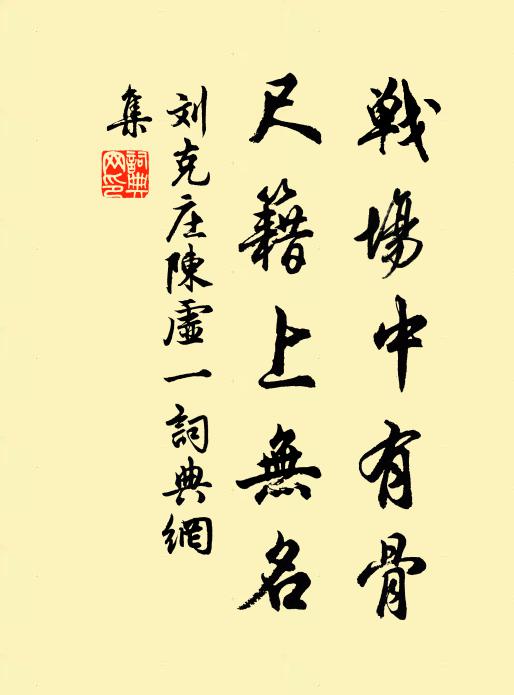 戰場中有骨
尺籍上無名
刘克庄陳虛一詞典網
集
詞典網印